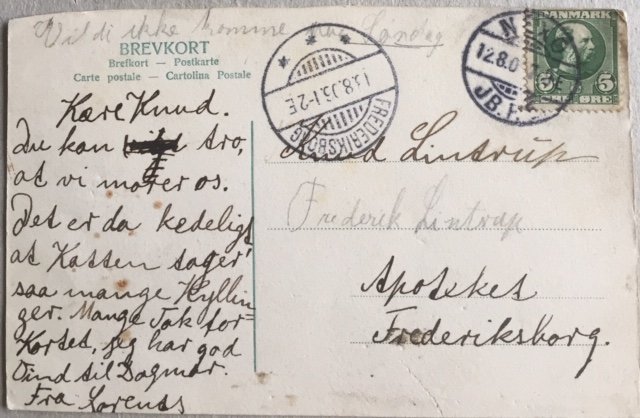 Vil di ikke komme paa Søndag
BREVKORT
Brefkort — Postkarte
Carte postale — Cartolina Postale
Kære Knud.
Du kan tro,
at vi morer os.
Det er da kedeligt
at Katten tager
saa mange Kyllin-
ger. Mange Tak for
Kortet, jeg har god
Vind til Dagmar.
Fra Lorents
FREDERIKSBORG
13.8.05.1-2E
12.8.0
JB.P.
DANMARK
5 ØRE 5
Knud Lintrup
Frederik Lintrup
Apotekes
Frederiksborg.